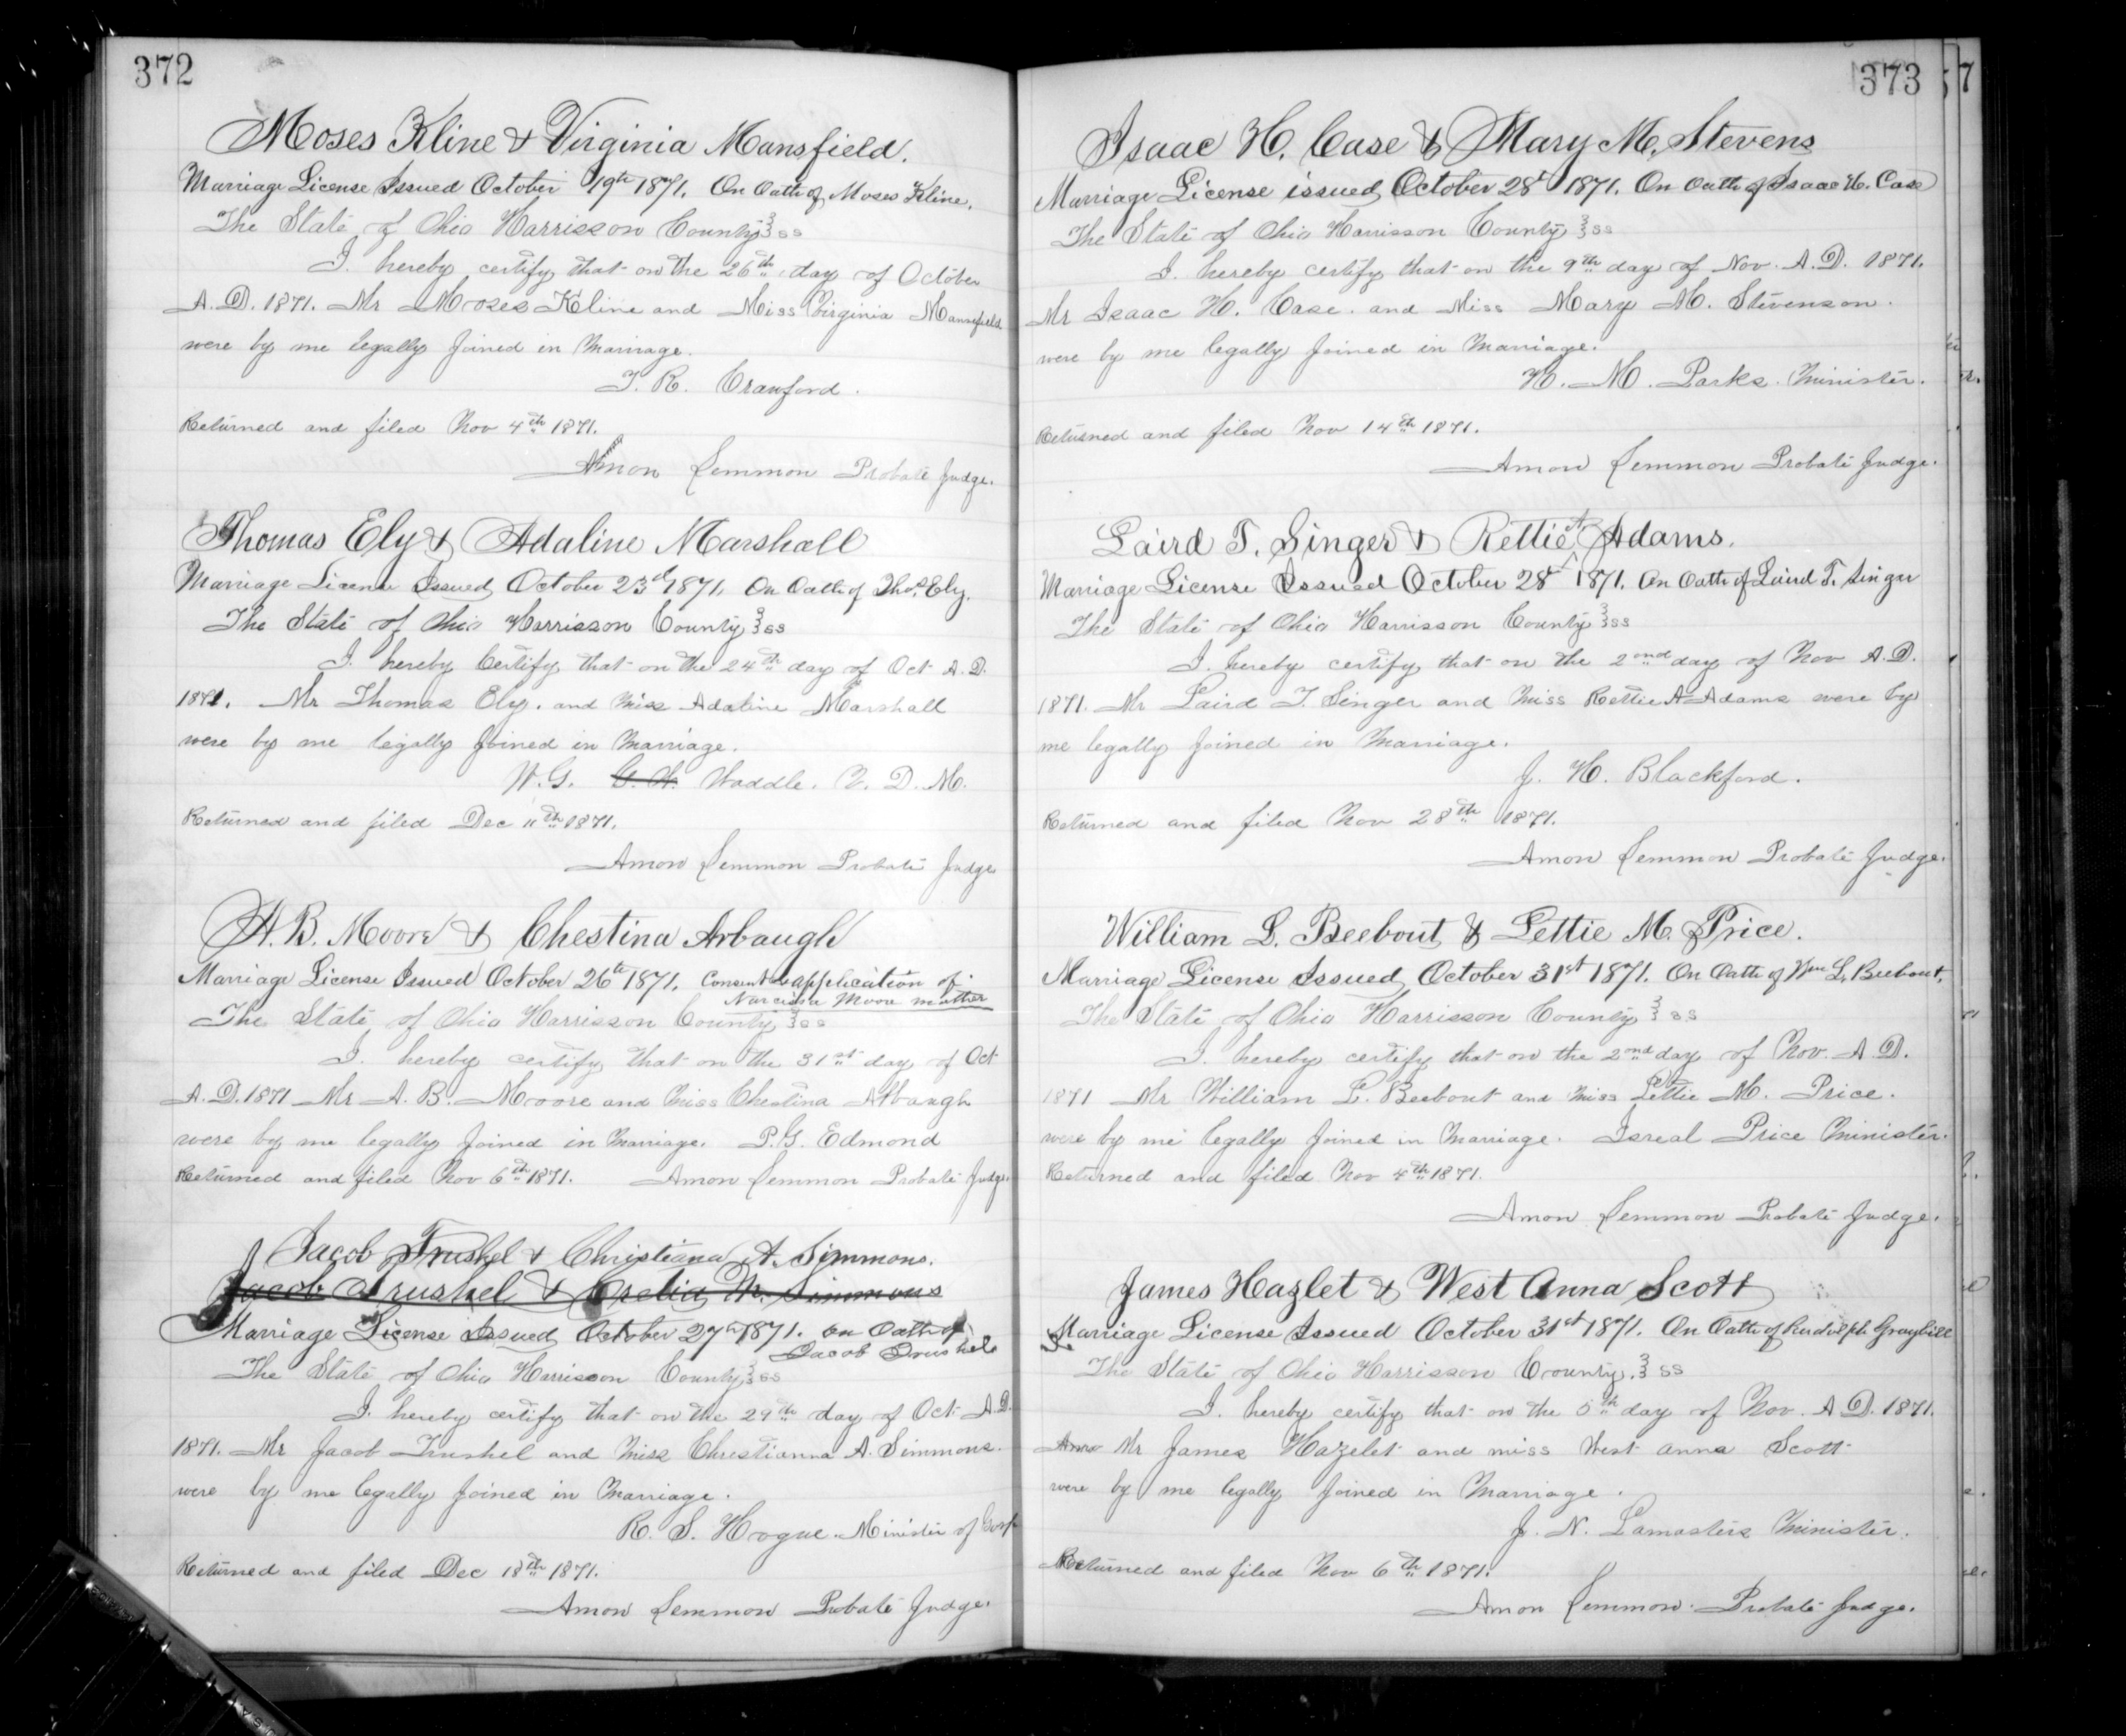 372
Moses Kline & Virginia Mansfield.
Marriage License Issued October 19th 1871. On Oath of Moses Kline.
The State of Ohio Harrison County }ss
I hereby certify that on the 26th day of October
A.D. 1871. Mr Moses Kline and Miss Virginia Mansfield
were by me legally joined in Marriage.
T. R. Crawford.
Returned and filed Nov 4th 1871.
Amon Lemmon Probate Judge.
Thomas Ely & Adaline Marshall
Marriage License Issued October 23d 1871. On Oath of Thos. Ely.
The State of Ohio Harrison County }ss
I hereby Certify that on the 24th day of Oct A.D.
1871. Mr Thomas Ely. and Miss Adaline Marshall
were by me legally joined in Marriage.
W.G. G.W. Waddle. V. D. M.
Returned and filed Dec 11th 1871.
Amon Lemmon Probate Judge
A.B. Moore & Chestina Arbaugh
Marriage License Issued October 26th 1871. Consent & application of
Narcissa Moore mother
The State of Ohio Harrison County }ss
I hereby certify that on the 31st day of Oct
A.D. 1871 Mr A. B. Moore and Miss Chestina Arbaugh
were by me legally joined in Marriage. P.G. Edmond
Returned and filed Nov 6th 1871. Amon Lemmon Probate Judge.
Jacob Trushel & Christiana A. Simmons.
Jacob Trushel & Simmons
Marriage License Issued October 27th 1871. On Oath of
Jacob Trushel
The State of Ohio Harrison County }ss
I hereby certify that on the 29th day of Oct A.D.
1871. Mr Jacob Trushel and Miss Christianna A. Simmons.
were by me legally joined in Marriage.
R. S. Hogue. Minister of
Returned and filed Dec 18th 1871.
Amon Lemmon Probate Judge.
373
Isaac H. Case & Mary M. Stevens
Marriage License issued October 28th 1871. On Oath of Isaac H. Case
The State of Ohio Harrison County }ss
I hereby certify that on the 9th day of Nov. A.D. 1871.
Mr Isaac H. Case. and Miss Mary M. Stevenson.
were by me legally joined in Marriage.
H. M. Parks. Minister.
Returned and filed Nov 14th 1871.
Amon Lemmon Probate Judge.
Laird T. Singer & Rettie A Adams.
Marriage License Issued October 28th 1871. On Oath of Laird T. Singer
The State of Ohio Harrison County }ss
I hereby certify that on the 2nd day of Nov A.D.
1871. Mr Laird T. Singer and Miss Rettie A Adams were by
me legally joined in Marriage.
J. H. Blackford.
Returned and filed Nov 28th 1871.
Amon Lemmon Probate Judge.
William L. Beebout & Lettie M. Price.
Marriage License Issued October 31st 1871. On Oath of Wm L. Beebout.
The State of Ohio Harrison County } ss
I hereby certify that on the 2nd day of Nov. A.D.
1871 Mr William L. Beebout and Miss Lettie M. Price.
were by me legally joined in Marriage. Isreal Price Minister.
Returned and filed Nov 4th 1871.
Amon Lemmon Probate Judge.
James Hazlet & West Anna Scott
Marriage License Issued October 31st 1871. On Oath of Rudolph Graybill
The State of Ohio Harrison County. } ss
I hereby certify that on the 5th day of Nov. A.D. 1871.
Mr James Hazelet and miss West Anna Scott
were by me legally joined in Marriage.
J. N. Lamasters Minister.
Returned and filed Nov 6th 1871.
Amon Lemmon. Probate Judge.